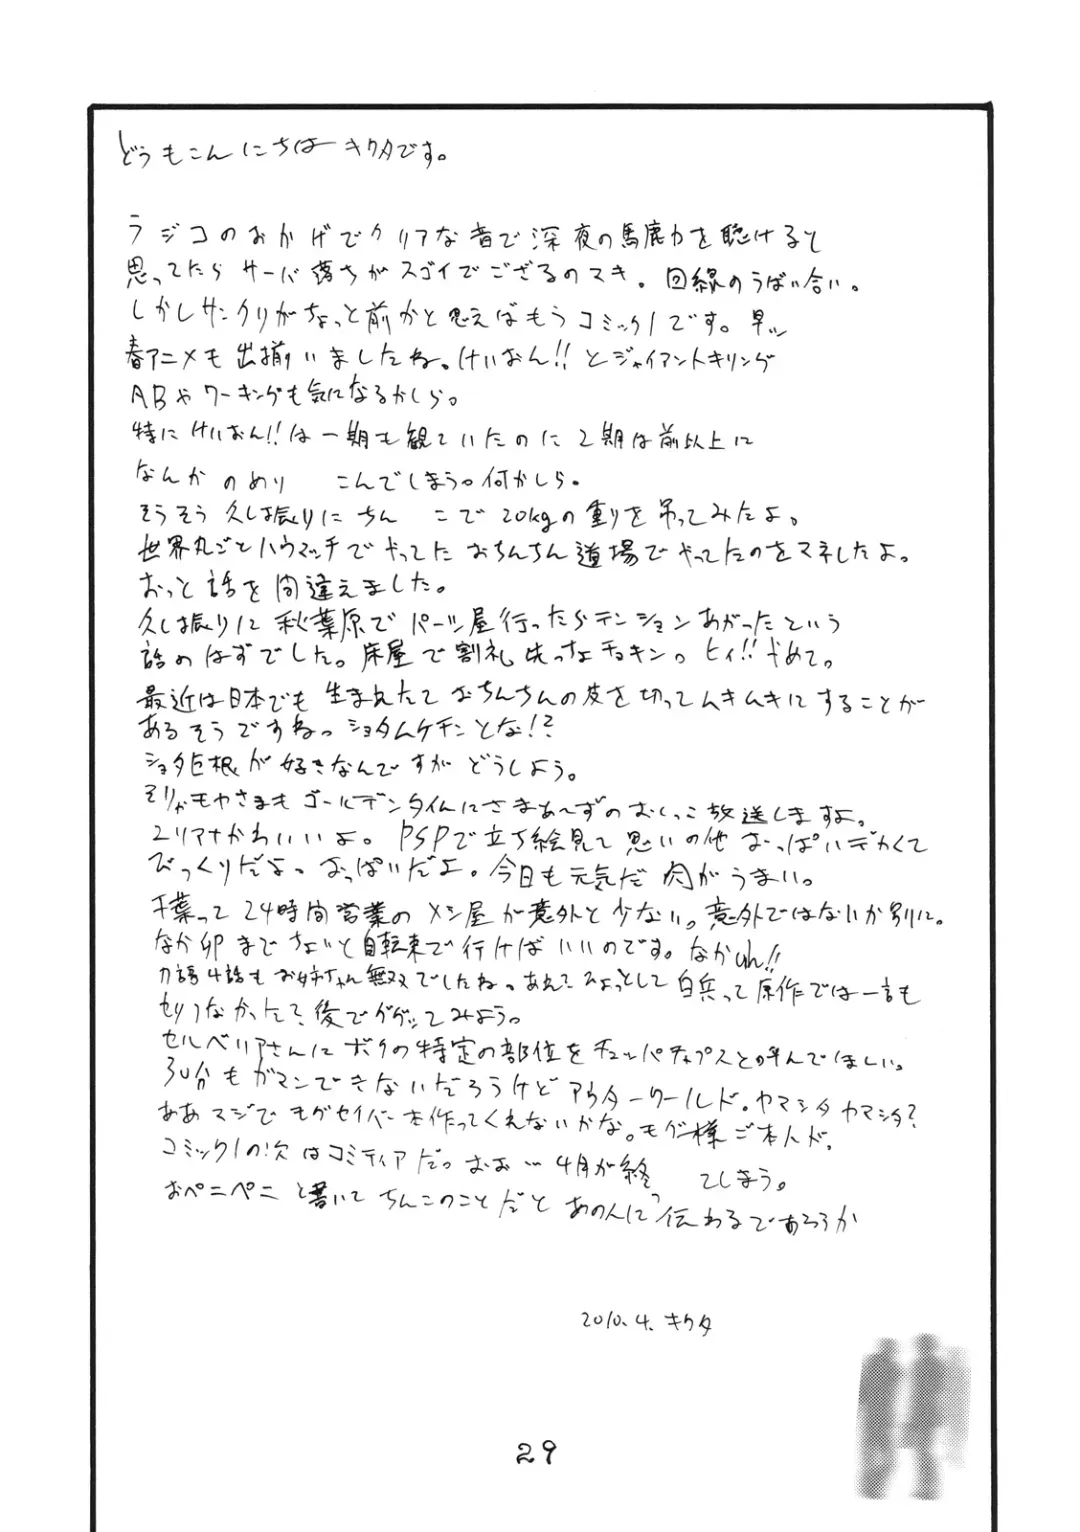 どうもこんにちはーキクタです。
ラジコのおかげでクリアな音で深夜の馬鹿力を聴けると
思ってたらサーバ落ちがスゴイでござるのマキ。回線のうばい合い。
しかしサンクリがちょっと前かと思えばもうコミック1です。早ッ
春アニメも出揃いましたね。けいおん!!とジャイアントキリング
ABやワーキングも気になるかしら。
特にけいおん!!は一期も観ていたのに2期は前以上に
なんかのめりこんでしまう。何かしら。
そうそう久し振りにちんこで20kgの重りを吊ってみたよ。
世界丸ごとハウマッチでやってたおちんちん道場でやってたのをマネしたよ。
おっと話を間違えました。
久し振りに秋葉原でパーツ屋行ったらテンションあがったという
話のはずでした。床屋で割礼 チョキン。ヒィ!!やめて。
ゴールデンタイムにさまぁ~ずのおしっこ放送しますよ。
ユリアナかわいいよ。PSPで立ち絵見て思いの他おっぱいデカくて
びっくりだよ。おっぱいだよ。今日も元気だ肉がうまい。
千葉って24時間営業のメシ屋が意外と少ない。意外ではないか別に。
なか卯までちょいと自転車で行けばいいのです。なかuh!!
お姉ちゃん無双でしたね。あえ?ひょっとして白兵って原作では一言も
セリフなかった?後でググッてみよう。
セルベリアさんにボクの特定の部位をチュッパチャプスと呼んでほしい。
30分もガマンできないだろうけどアウターワールド。ヤマシタヤマシタ?
ああマジでモグセイバー本作ってくれないかな。モグ様ご本人が。
コミック1の次はコミティアだっ おお…4月が終 てしまう。
おペニペニと書いてちんこのことだと 伝わるであろうか
2010.4.キクタ
29